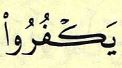 يَكْفُرُوا۟